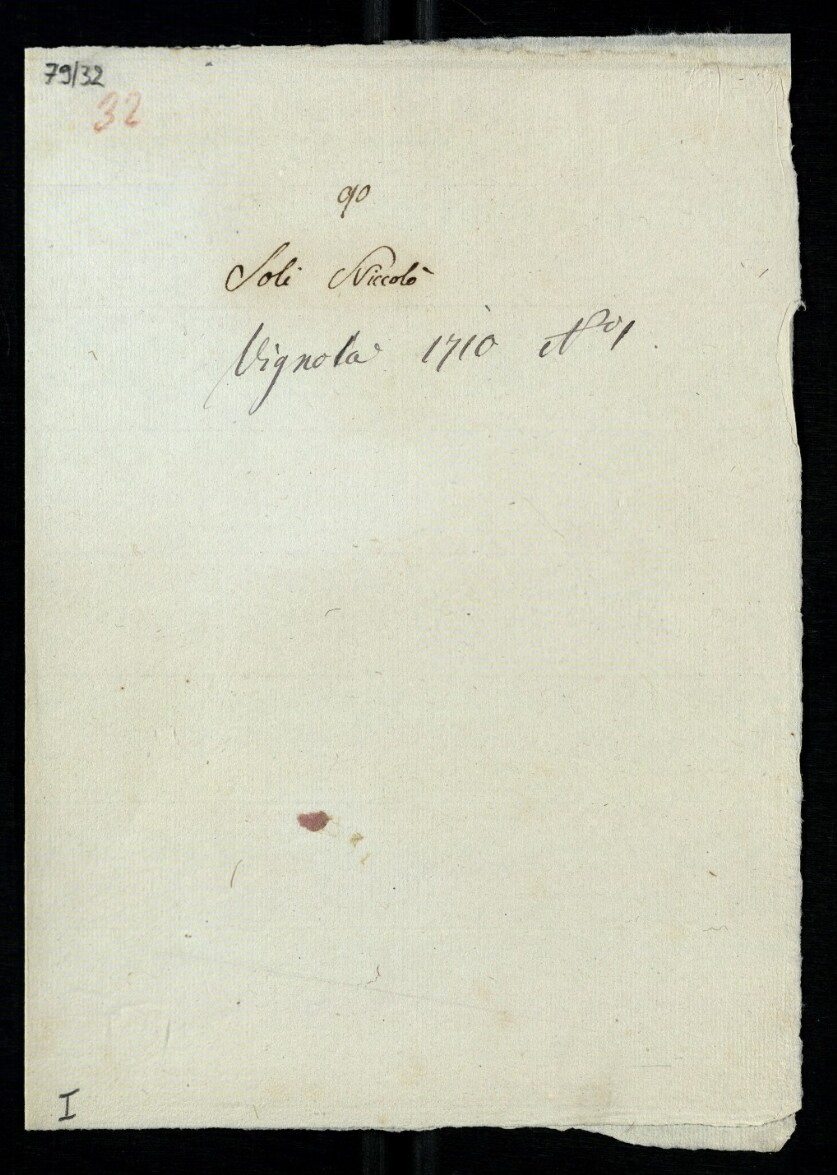 79/32
32
90
Soli Niccolò
Vignola 1710 N.º 1
I